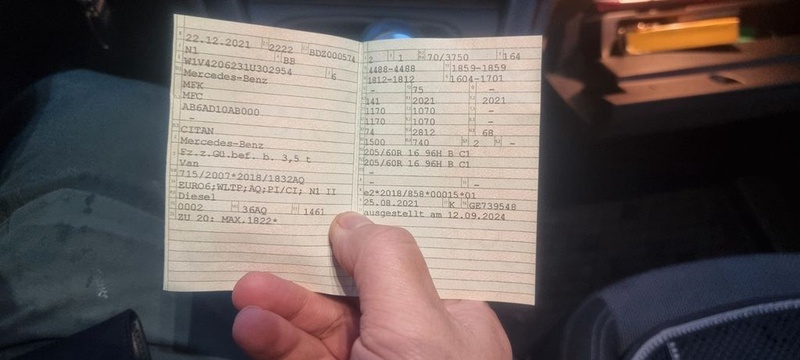 22.12.2021 2222 BDZ000574
N1 BB
W1V4206231U302954 6
Mercedes-Benz
MFK
MFC
AB6AD10AB000
-
CITAN
Mercedes-Benz
Fz.z.Gü.bef. b. 3,5 t
Van
715/2007*2018/1832AQ
EURO6;WLTP;AQ;PI/CI; N1 II
Diesel
0002 36AQ 1461
ZU 20: MAX.1822*
2 1 70/3750 164
4488-4488 1859-1859
1812-1812 1604-1701
- 75 -
141 2021 2021
1170 1070 -
1170 1070 -
74 2812 68
1500 740 2 -
205/60R 16 96H B C1
205/60R 16 96H B C1
-
- -
e2*2018/858*00015*01
25.08.2021 K GE739548
ausgestellt am 12.09.2024